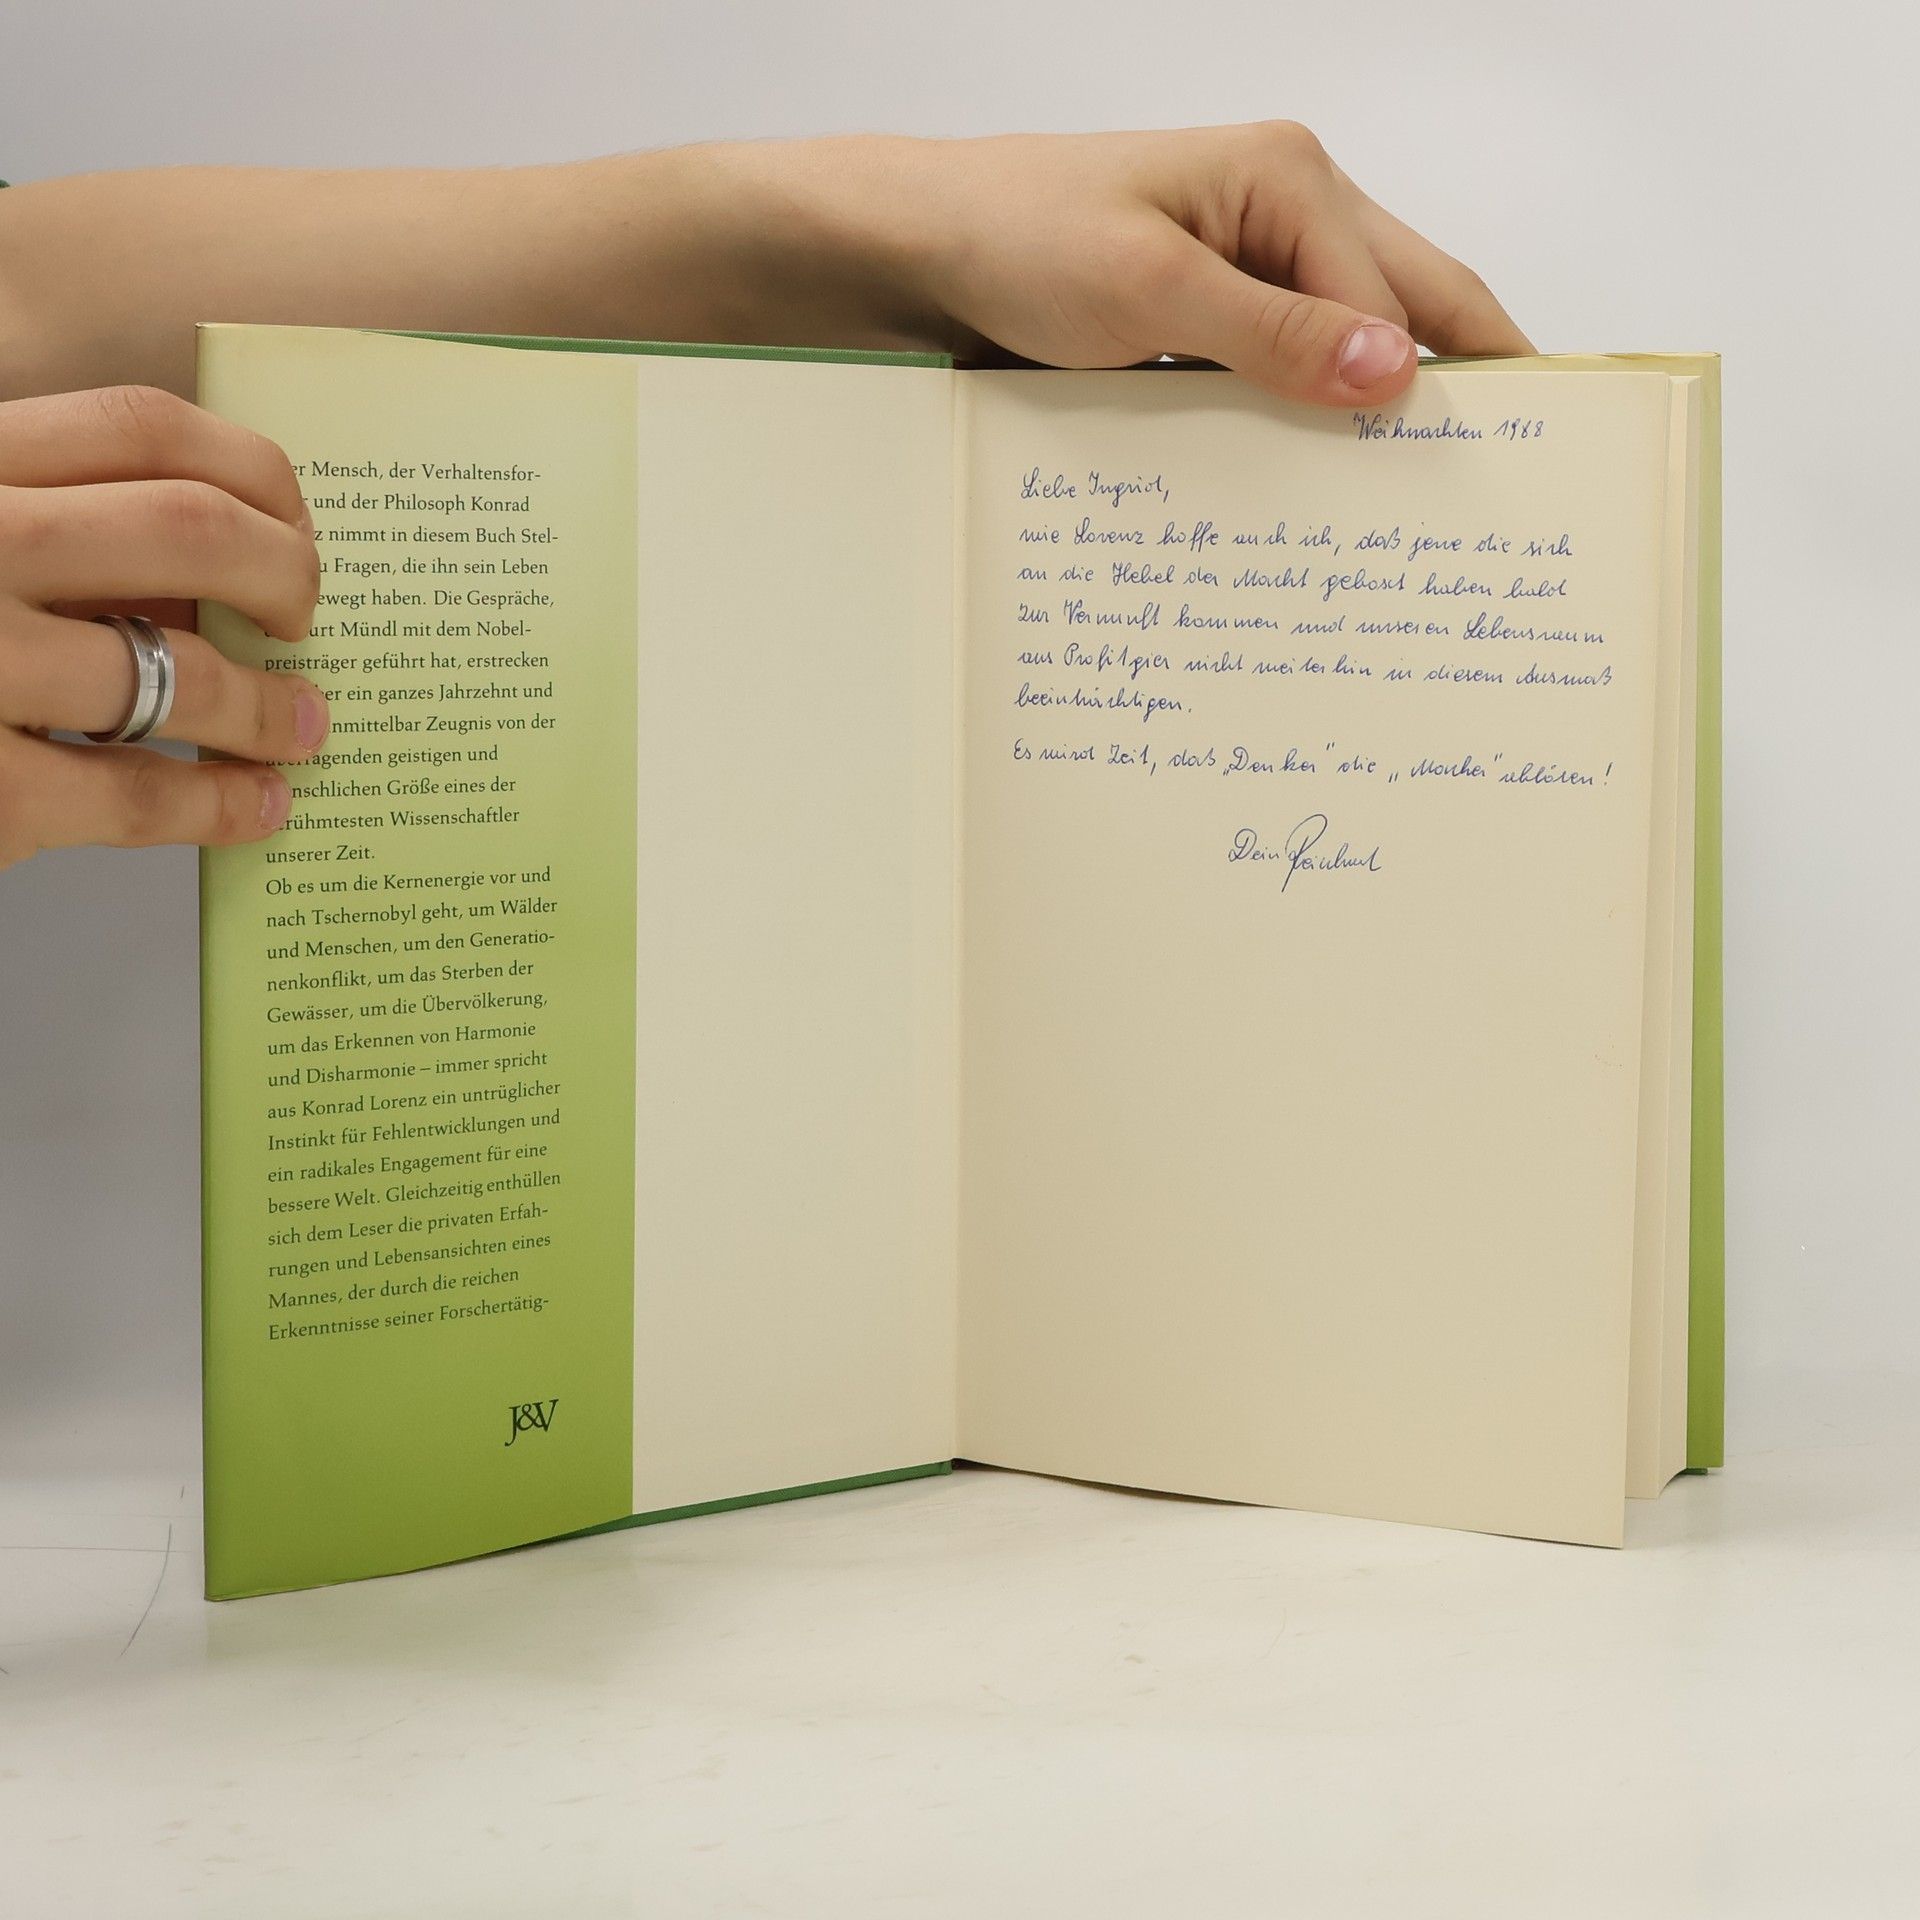 er Mensch, der Verhaltensfor-
und der Philosoph Konrad
z nimmt in diesem Buch Stel-
u Fragen, die ihn sein Leben
ewegt haben. Die Gespräche,
urt Mündl mit dem Nobel-
preisträger geführt hat, erstrecken
ber ein ganzes Jahrzehnt und
unmittelbar Zeugnis von der
überragenden geistigen und
nschlichen Größe eines der
erühmtesten Wissenschaftler
unserer Zeit.
Ob es um die Kernenergie vor und
nach Tschernobyl geht, um Wälder
und Menschen, um den Generatio-
nenkonflikt, um das Sterben der
Gewässer, um die Übervölkerung,
um das Erkennen von Harmonie
und Disharmonie – immer spricht
aus Konrad Lorenz ein untrüglicher
Instinkt für Fehlentwicklungen und
ein radikales Engagement für eine
bessere Welt. Gleichzeitig enthüllen
sich dem Leser die privaten Erfah-
rungen und Lebensansichten eines
Mannes, der durch die reichen
Erkenntnisse seiner Forschertätig-
J&V
Weihnachten 1988
Liebe Ingrid,
wie Lorenz hoffe auch ich, daß jene die sich
an die Hebel der Macht geboxt haben bald
zur Vernunft kommen und unseren Lebensraum
aus Profitgier nicht weiterhin in diesem Ausmaß
beeinträchtigen.
Es wird Zeit, daß „Denker" die „Macher" ablösen!
Dein